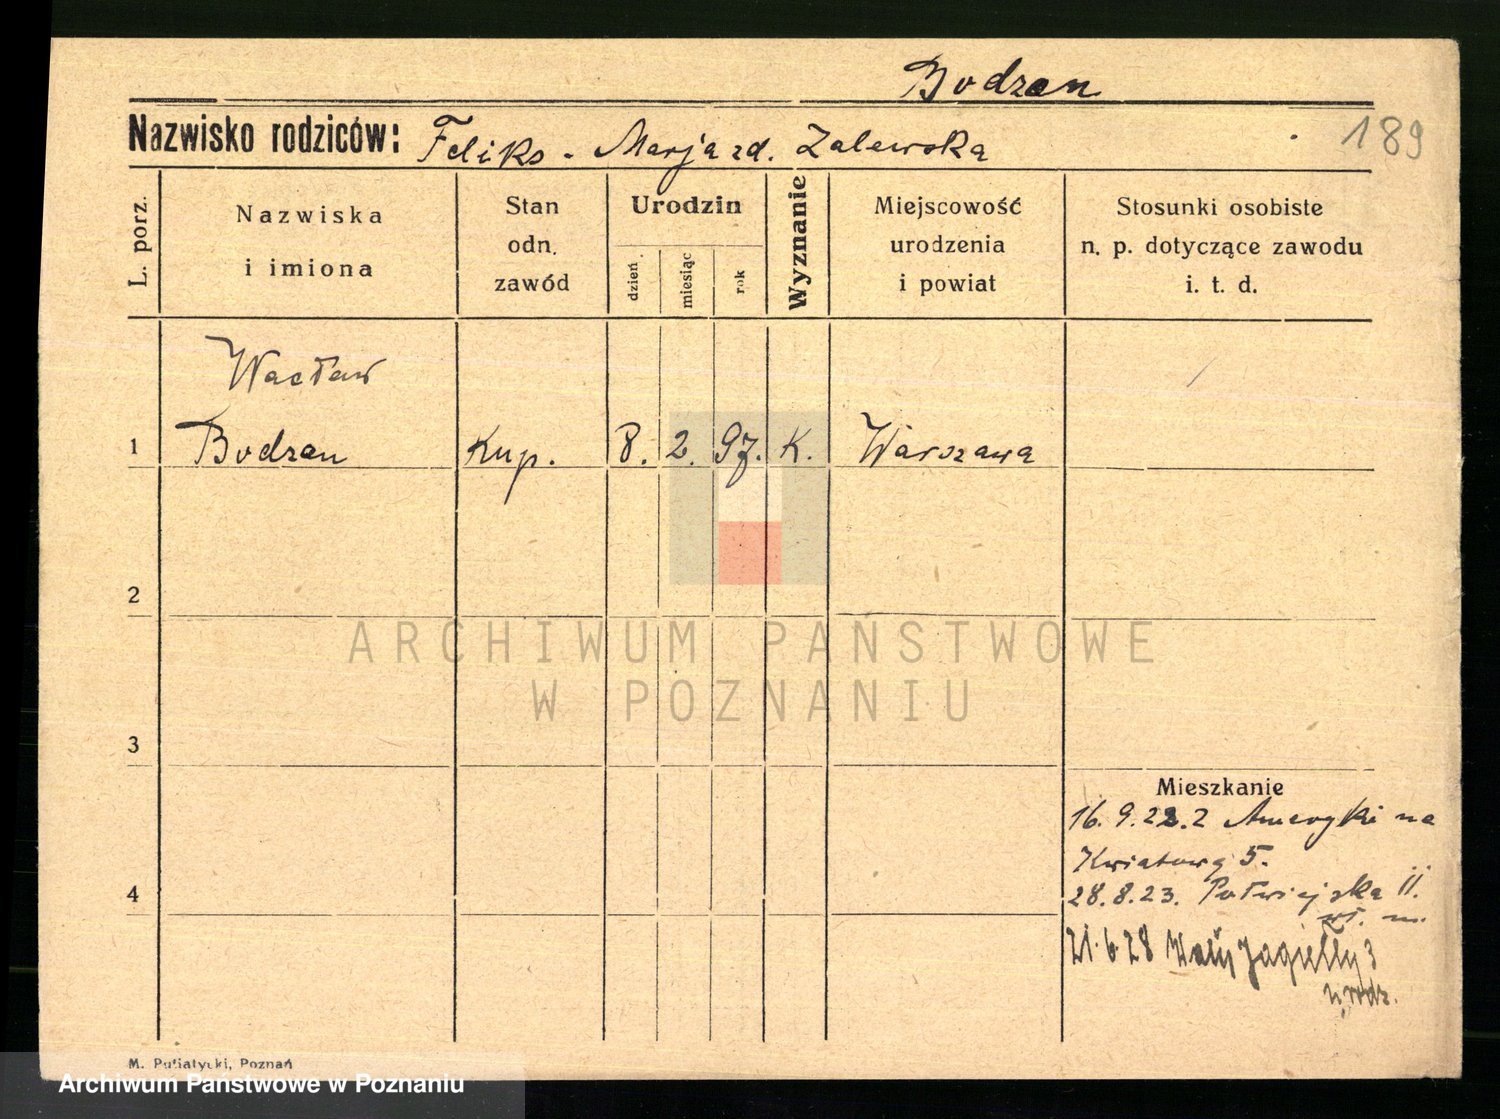 Bodzan
Nazwisko rodziców: Feliks - Marja zd. Zalewska
189
L. porz.
Nazwiska
i imiona
Stan
odn.
zawód
Urodzin
dzień
miesiąc
rok
Wyznanie
Miejscowość
urodzenia
i powiat
Stosunki osobiste
n. p. dotyczące zawodu
i. t. d.
Wacław
1 Bodzan Kup. 8. 2. 97. K. Warszawa
2
ARCHIWUM PAŃSTWOWE
W POZNANIU
3
Mieszkanie
16. 9. 22. z Ameryki na
Kwiatową 5.
4
28. 8. 23. Półwiejska 11.
wł. m.
21. 6 28 Wały Jagiełły 3
M. Putiatycki, Poznań
Archiwum Państwowe w Poznaniu